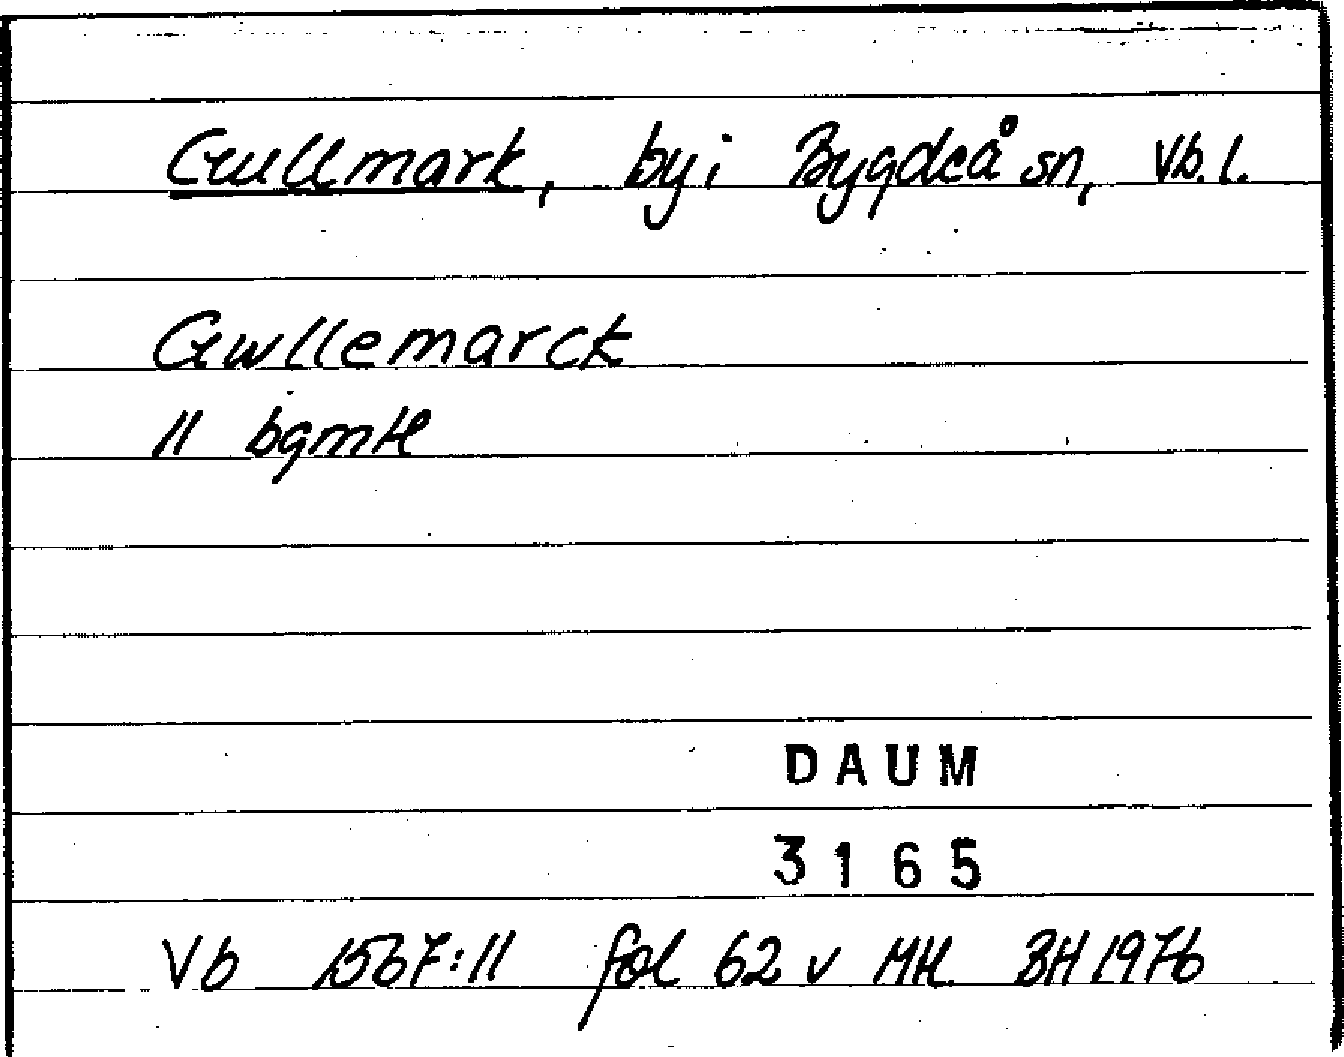 Gullmark, by i Bygdeå sn, Vb. l.
Gwllemarck
11 bgmtl
DAUM
3165
Vb 1567:11 fol 62 v MH BH 1976